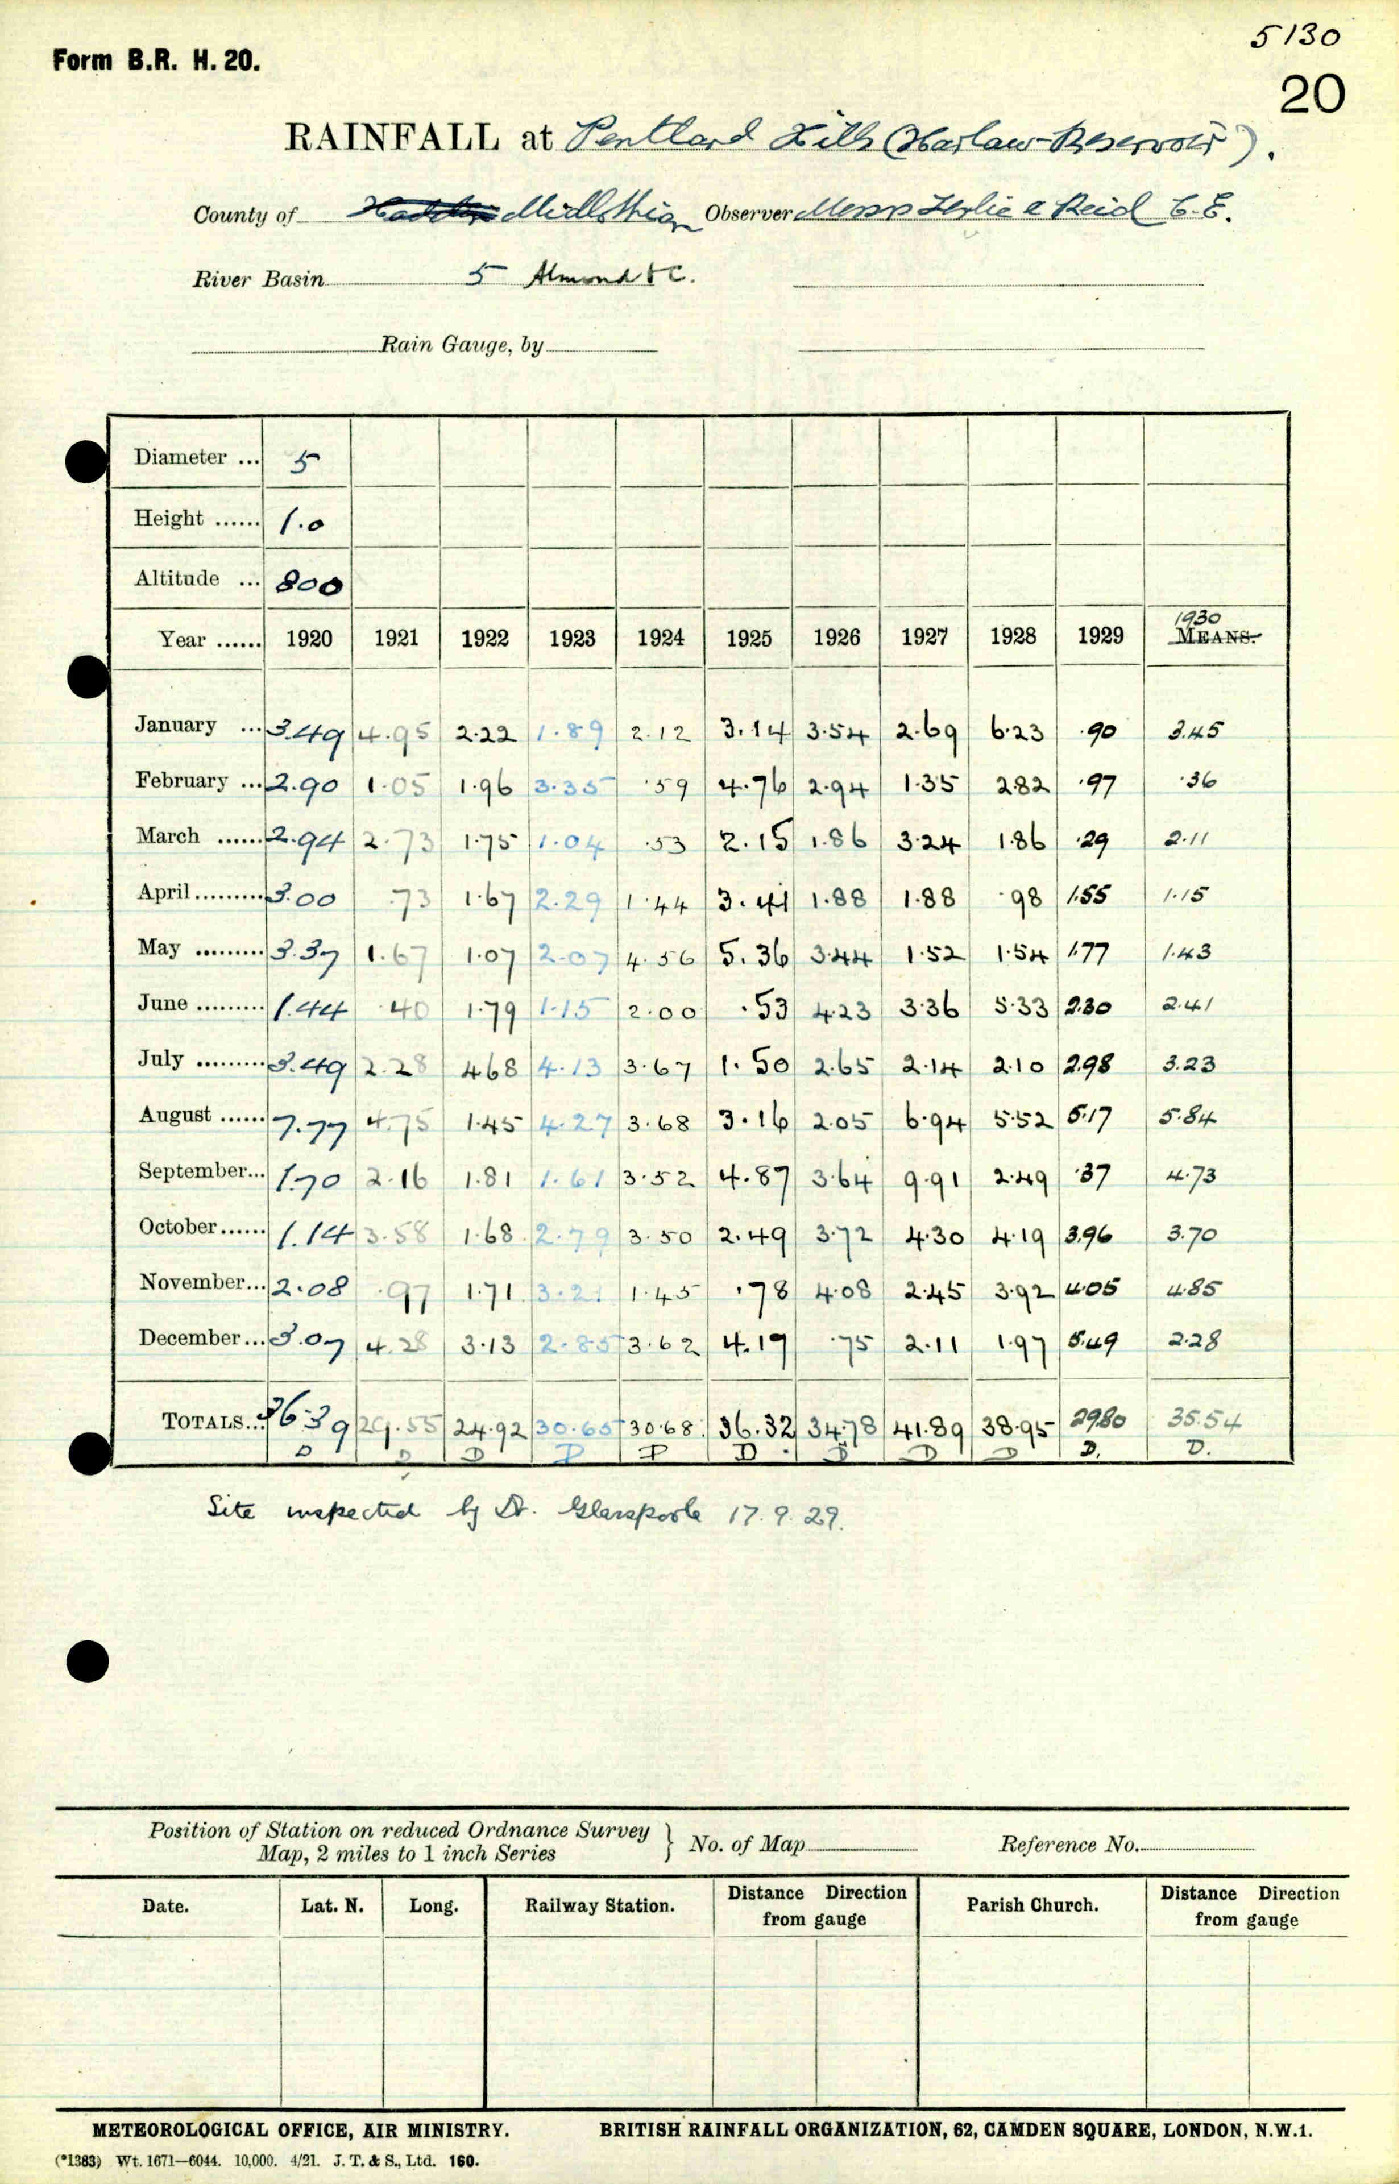 5130
Form B.R. H. 20.
20
RAINFALL at Pentland Hills (Harlaw Reservoir).
County of Midlothian Observer Messrs Leslie & Reid C.E.
River Basin 5 Almond &c.
Rain Gauge, by
Diameter ... 5
Height ...... 1.0
Altitude ... 800
1930
Year ...... 1920 1921 1922 1923 1924 1925 1926 1927 1928 1929 MEANS.
January ... 3.49 4.95 2.22 1.89 2.12 3.14 3.54 2.69 6.23 .90 3.45
February ... 2.90 1.05 1.96 3.35 .59 4.76 2.94 1.35 2.82 .97 .36
March ...... 2.94 2.73 1.75 1.04 .53 2.15 1.86 3.24 1.86 .29 2.11
April......... 3.00 .73 1.67 2.29 1.44 3.41 1.88 1.88 .98 1.55 1.15
May ......... 3.37 1.67 1.07 2.07 4.56 5.36 3.44 1.52 1.54 1.77 1.43
June ......... 1.44 .40 1.79 1.15 2.00 .53 4.23 3.36 5.33 2.30 2.41
July ......... 3.49 2.28 4.68 4.13 3.67 1.50 2.65 2.14 2.10 2.98 3.23
August ...... 7.77 4.75 1.45 4.27 3.68 3.16 2.05 6.94 5.52 5.17 5.84
September... 1.70 2.16 1.81 1.61 3.52 4.87 3.64 9.91 2.49 .37 4.73
October...... 1.14 3.58 1.68 2.79 3.50 2.49 3.72 4.30 4.19 3.96 3.70
November... 2.08 .97 1.71 3.21 1.45 .78 4.08 2.45 3.92 4.05 4.85
December... 3.07 4.28 3.13 2.85 3.62 4.17 .75 2.11 1.97 5.49 2.28
TOTALS... 36.39 29.55 24.92 30.65 30.68 36.32 34.78 41.89 38.95 29.80 35.54
D D D D P D D D D D. D.
Site inspected by Dr. Glasspoole 17.9.29.
Position of Station on reduced Ordnance Survey
Map, 2 miles to 1 inch Series } No. of Map Reference No.
Date. Lat. N. Long. Railway Station. Distance Direction from gauge Parish Church. Distance Direction from gauge
METEOROLOGICAL OFFICE, AIR MINISTRY. BRITISH RAINFALL ORGANIZATION, 62, CAMDEN SQUARE, LONDON, N.W.1.
(*1383) Wt. 1671—6044. 10,000. 4/21. J. T. & S., Ltd. 160.